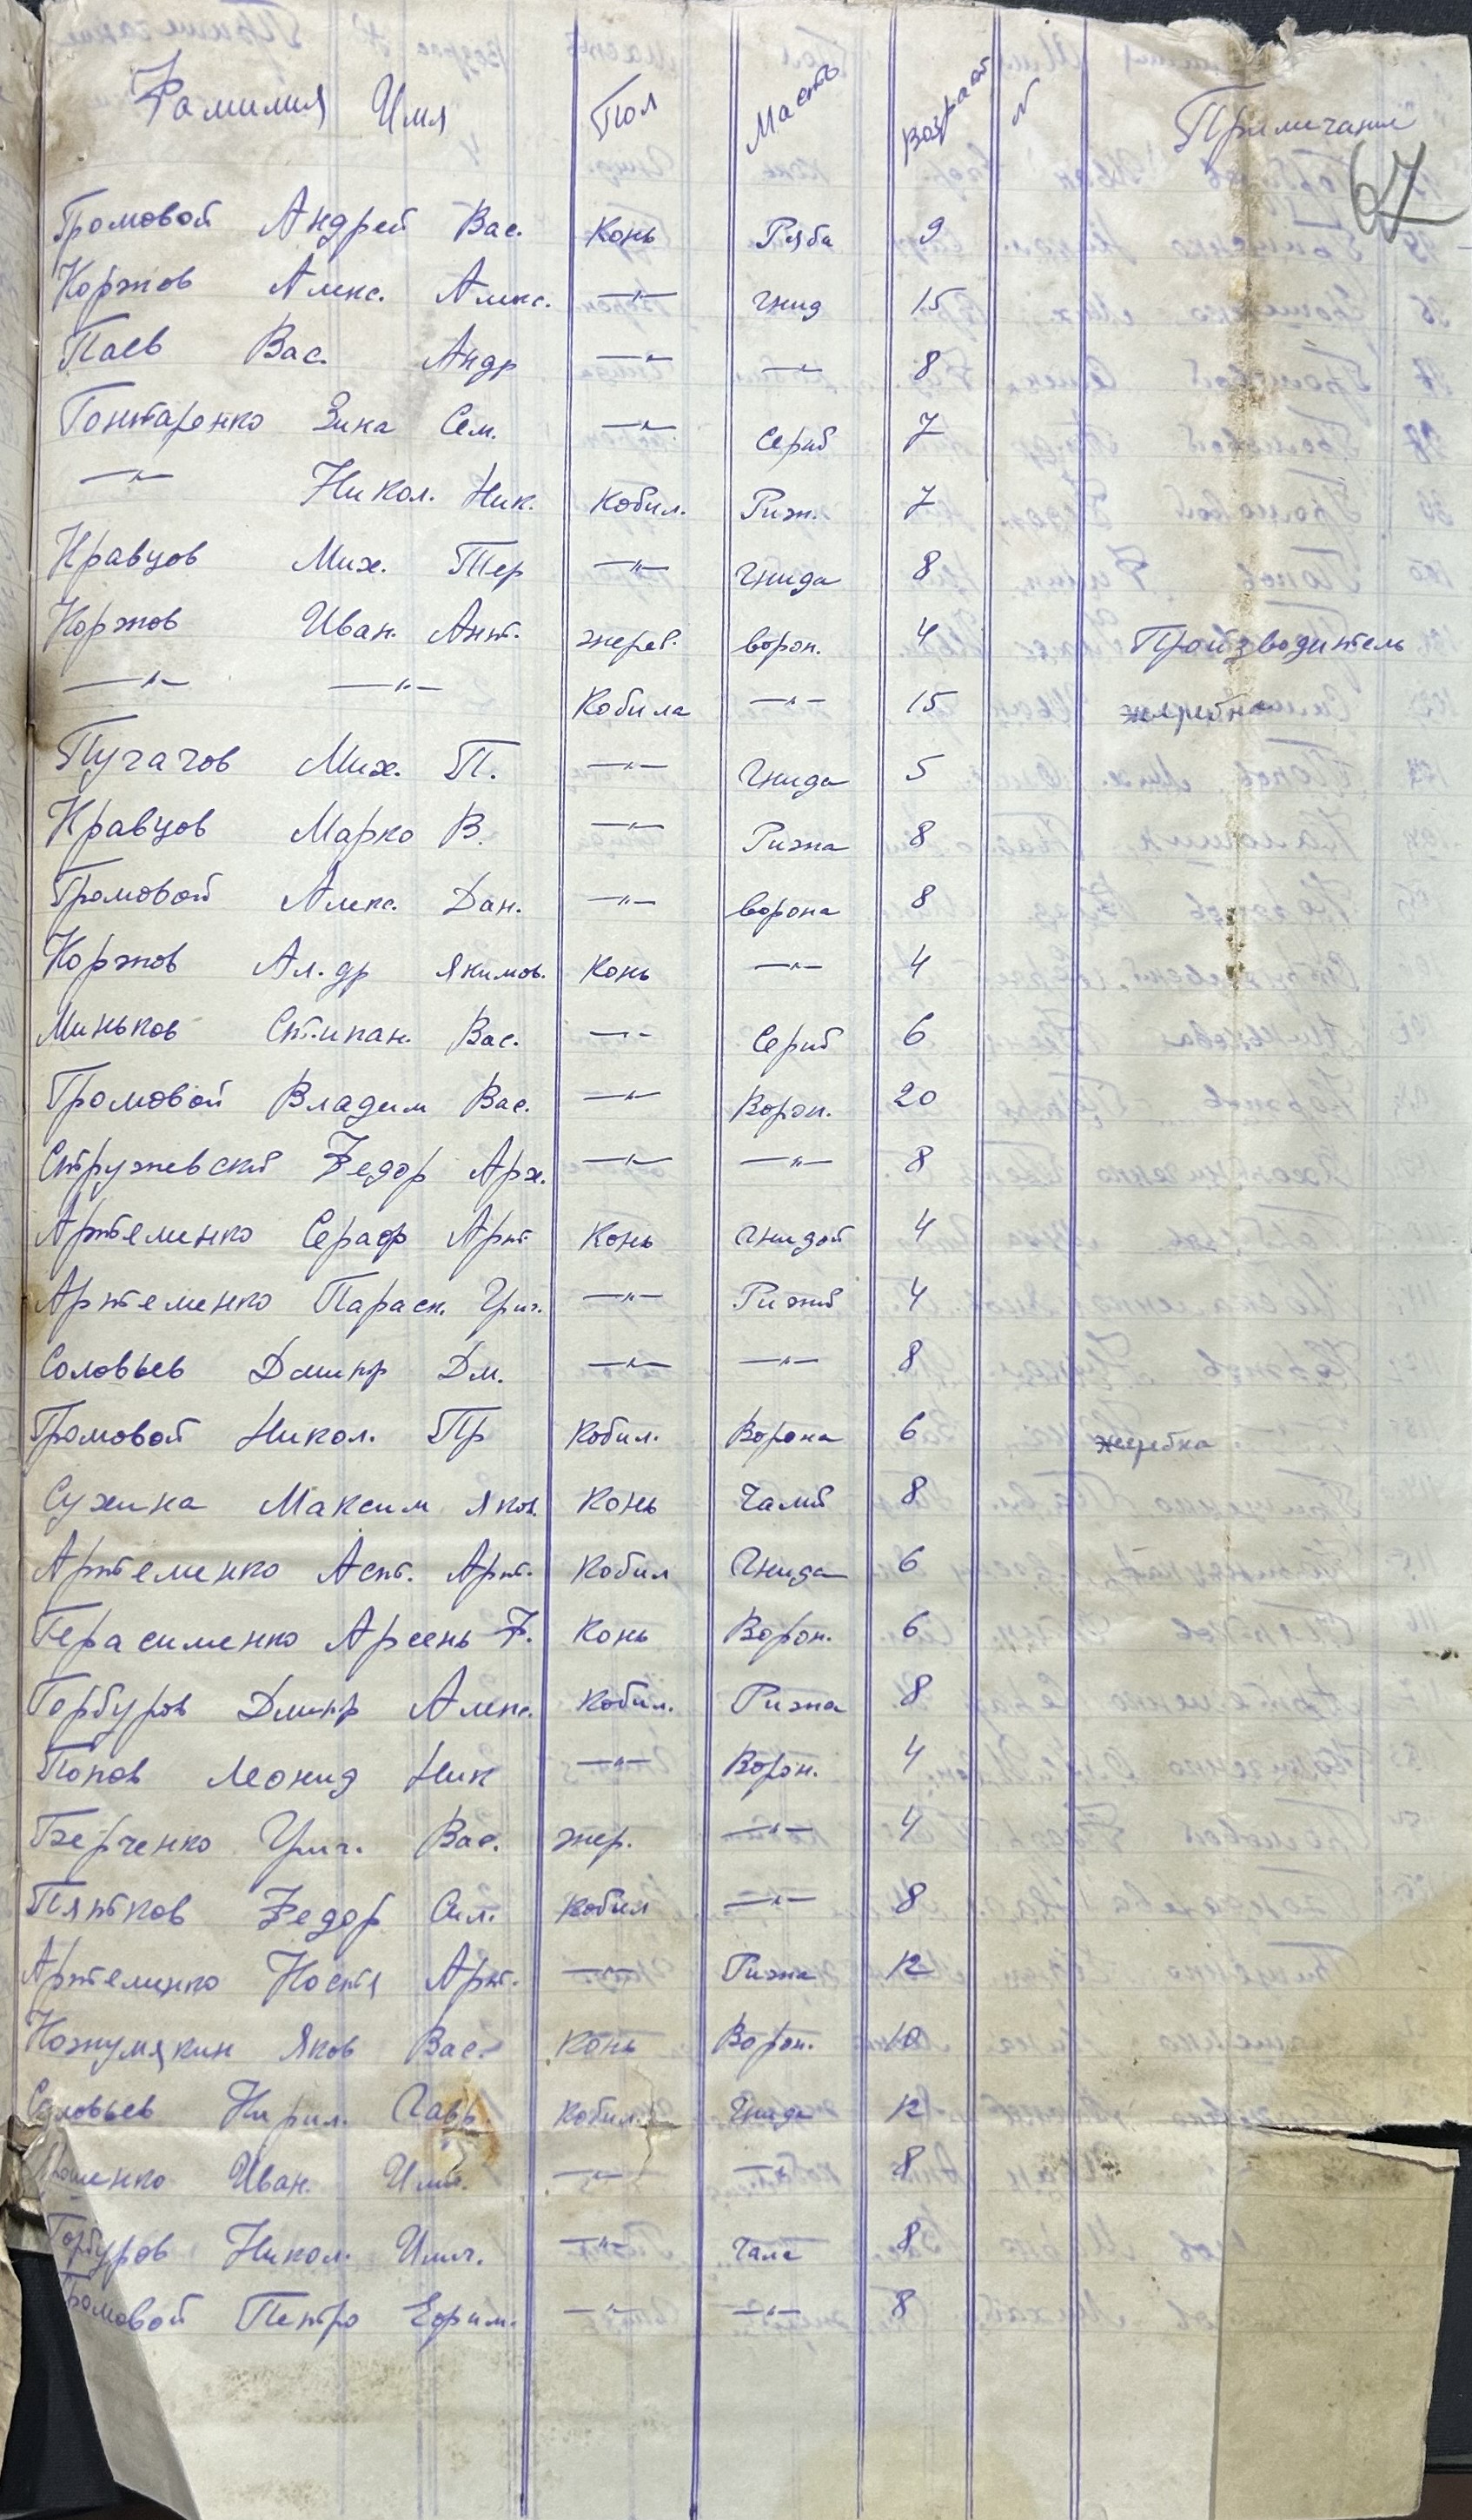 Фамилия Имя Пол Масть Возраст N Примичание
67
Громовой Андрей Вас. Конь Ряба 9
Коржов Алекс. Алекс. —"— Гнид 15
Паев Вас. Андр —"— —"— 8
Гонтаренко Зина Сем. —"— Серий 7
—"— Никол. Ник. Кобил. Риж. 7
Кравцов Мих. Тер —"— Гнида 8
Коржов Иван. Ант. жереб. ворон. 4 Производитель
—"— —"— Кобила —"— 15 жеребна
Пугачов Мих. П. —"— Гнида 5
Кравцов Марко В. —"— Рижа 8
Громовой Алекс. Дан. —"— ворона 8
Коржов Ал.др Якимов. Конь —"— 4
Миньков Стипан. Вас. —"— Серий 6
Громовой Владим Вас. —"— Ворон. 20
Стружевский Федор Арх. —"— —"— 8
Артеменко Сераф Арт Конь Гнидой 4
Артеменко Параск. Григ. —"— Рижий 4
Соловьев Дмитр Дм. —"— —"— 8
Громовой Никол. Пр Кобил. Ворона 6 жеребна
Сухина Максим Яков. Конь Чалий 8
Артеменко Аст. Арт. Кобил Гнида 6
Герасименко Арсень Ф. Конь Ворон. 6
Горбуров Дмитр Алекс. Кобил. Рижа 8
Попов Леонид Ник —"— Ворон. 4
Берченко Григ. Вас. жер. —"— 4
Пятков Федор Сил. Кобил —"— 8
Артеменко Костя Арт. —"— Рижа 12
Кожумякин Яков Вас. Конь Ворон. 10
Соловьев Кирил. Гавр. Кобил. Гнида 12
Иван. —"— —"— 8
Горбуров Никол. —"— Чала 8
Громовой Петро Ефим. —"— —"— 8